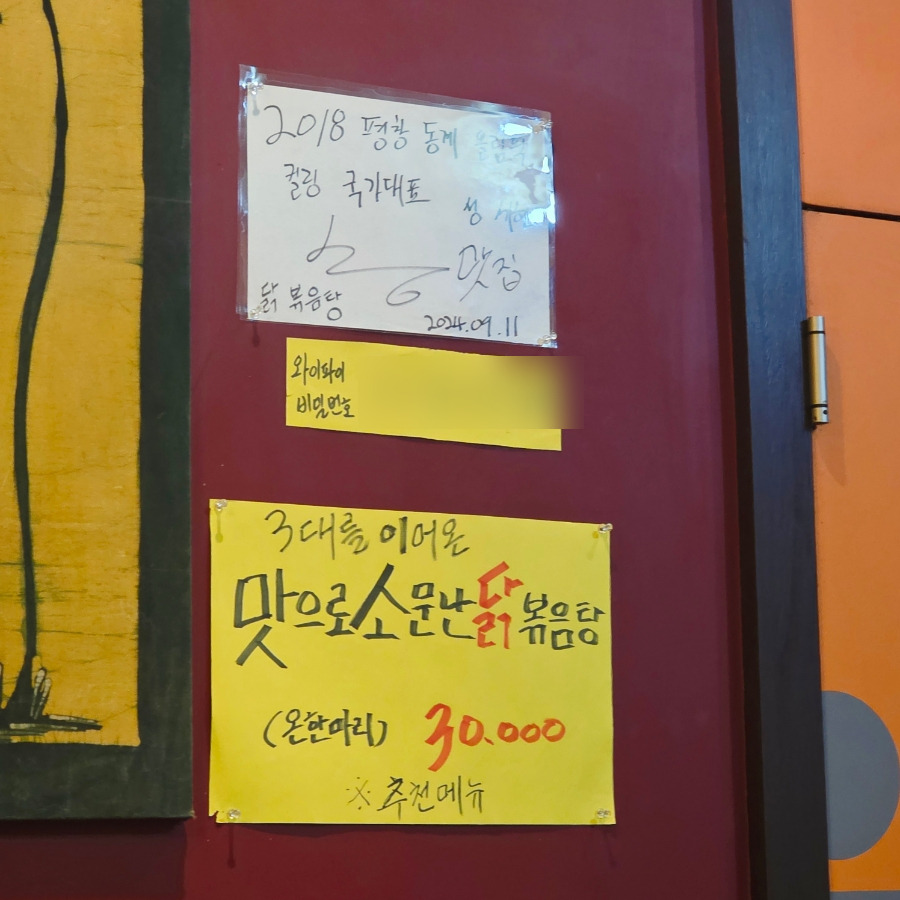 2018 평창 동계 올림픽
컬링 국가대표
성 세현
맛집
닭 볶음탕
2024.09.11
와이파이
비밀번호
3대를 이어온
맛으로소문난닭볶음탕
(온한마리) 30.000
※ 추천메뉴